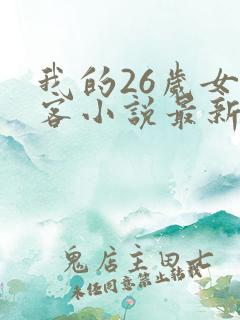 我的26岁女
客小说最新
鬼店主田七
未经同意禁止转载